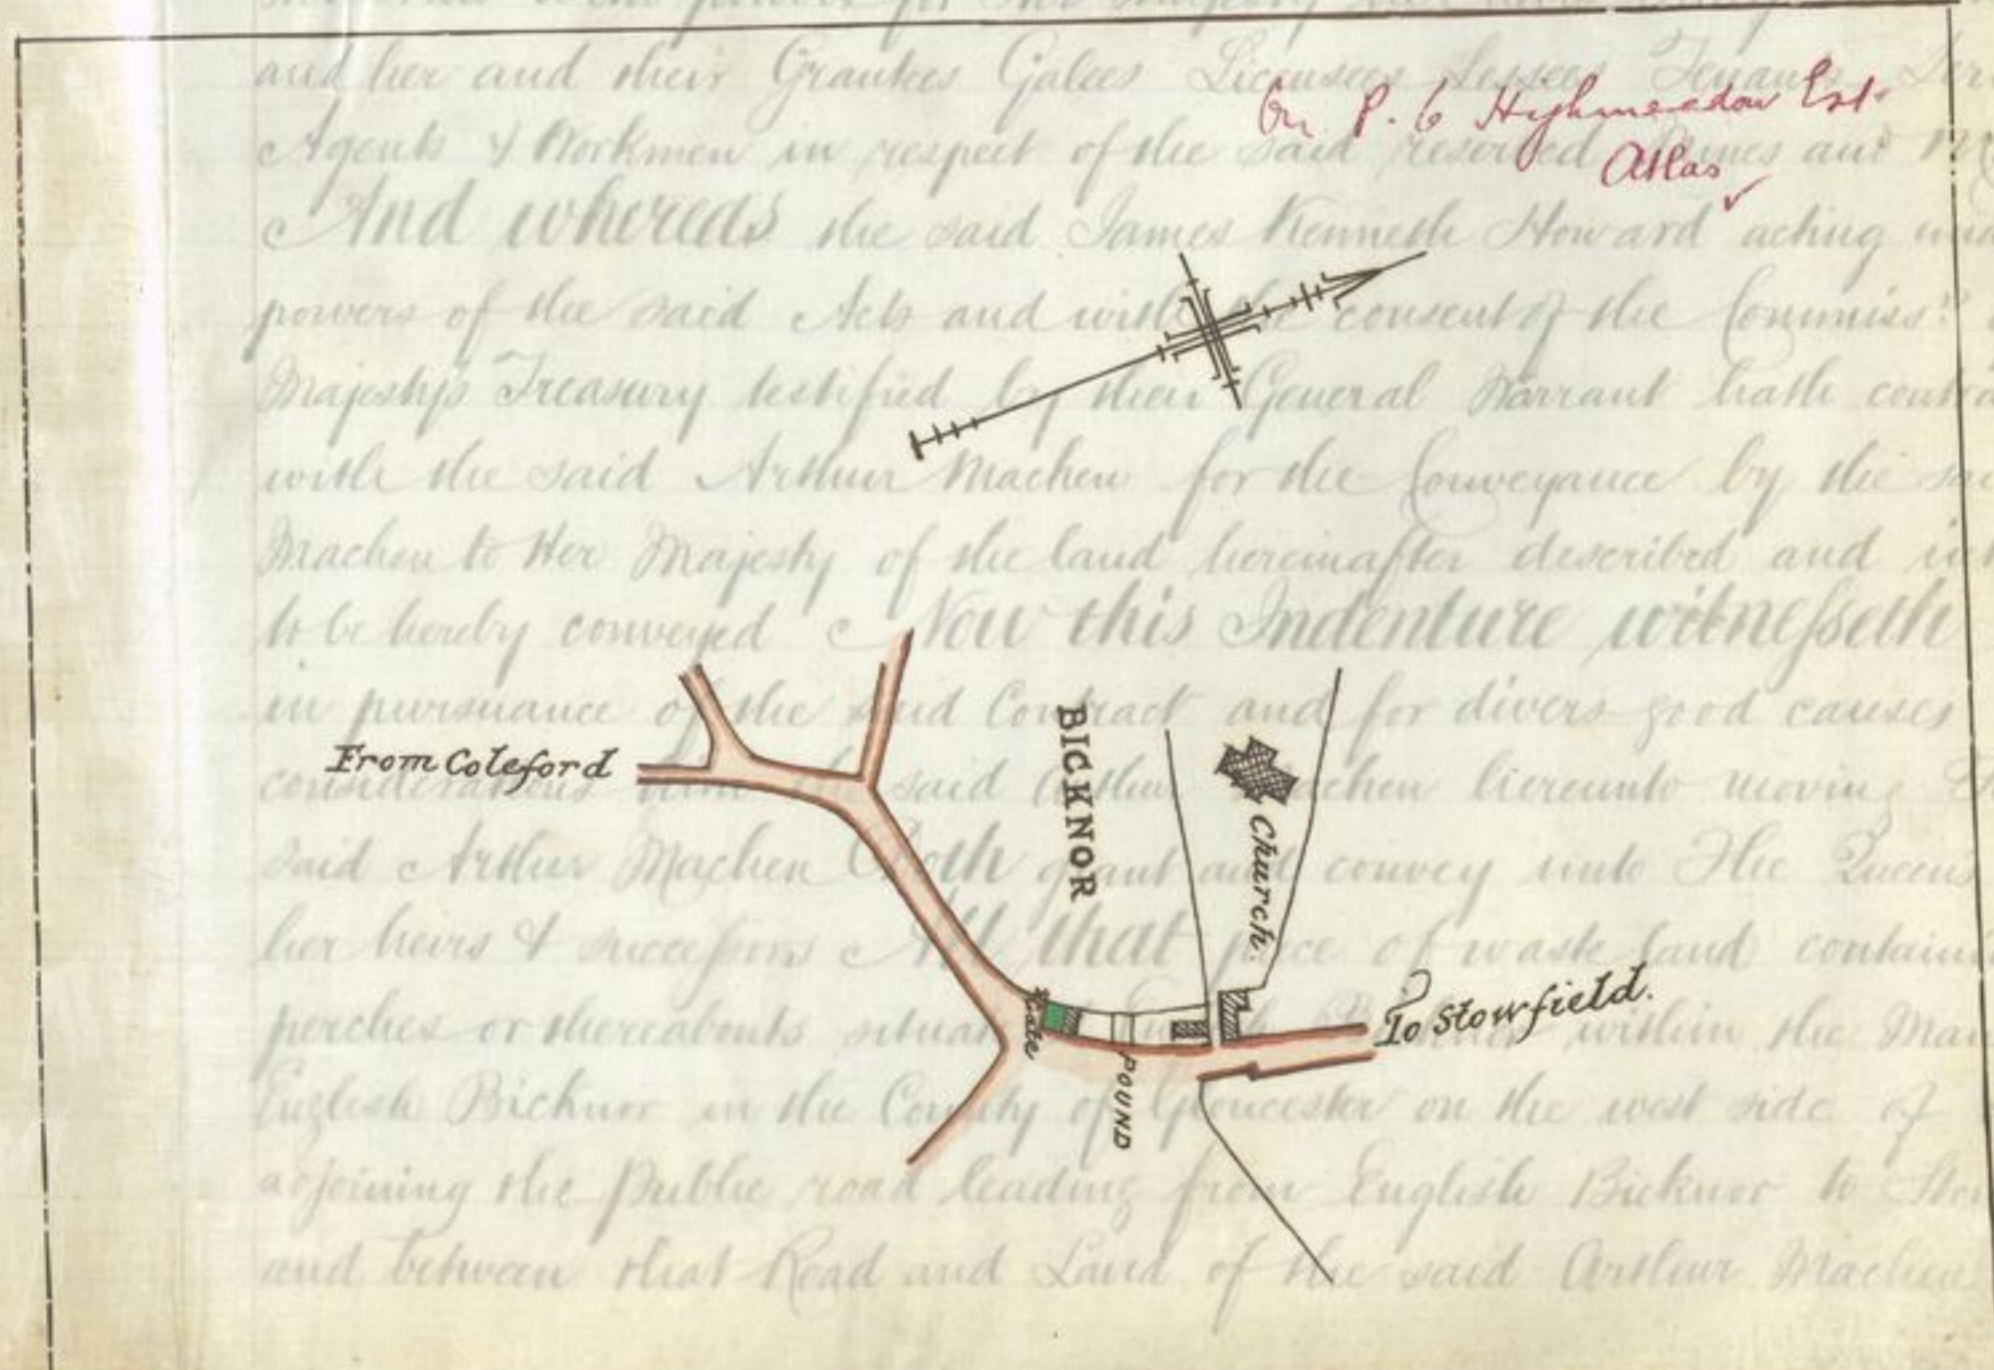 and her and their Grantees Galees Licensees Lessees Tenants
On P. 6 Highmeadow Est.
Agents & Workmen in respect of the said reserved Mines and
Atlas
And whereas the said James Kenneth Howard acting
powers of the said Acts and with the consent of the Commiss.rs
Majesty's Treasury testified by their General Warrant hath
with the said Arthur Machen for the Conveyance by the
Machen to Her Majesty of the land hereinafter described and
to be hereby conveyed Now this Indenture witnesseth
in pursuance of the said Contract and for divers good causes
BICKNOR
From Coleford
considerations him the said Arthur Machen hereunto moving
Church.
said Arthur Machen Doth grant and convey unto The Queens
her heirs & successors All that piece of waste land
To Stowfield.
perches or thereabouts situate within the
Gate
POUND
English Bicknor in the County of Gloucester on the west side of
adjoining the Public road leading from English Bicknor to
and between that Road and Land of the said Arthur Machen